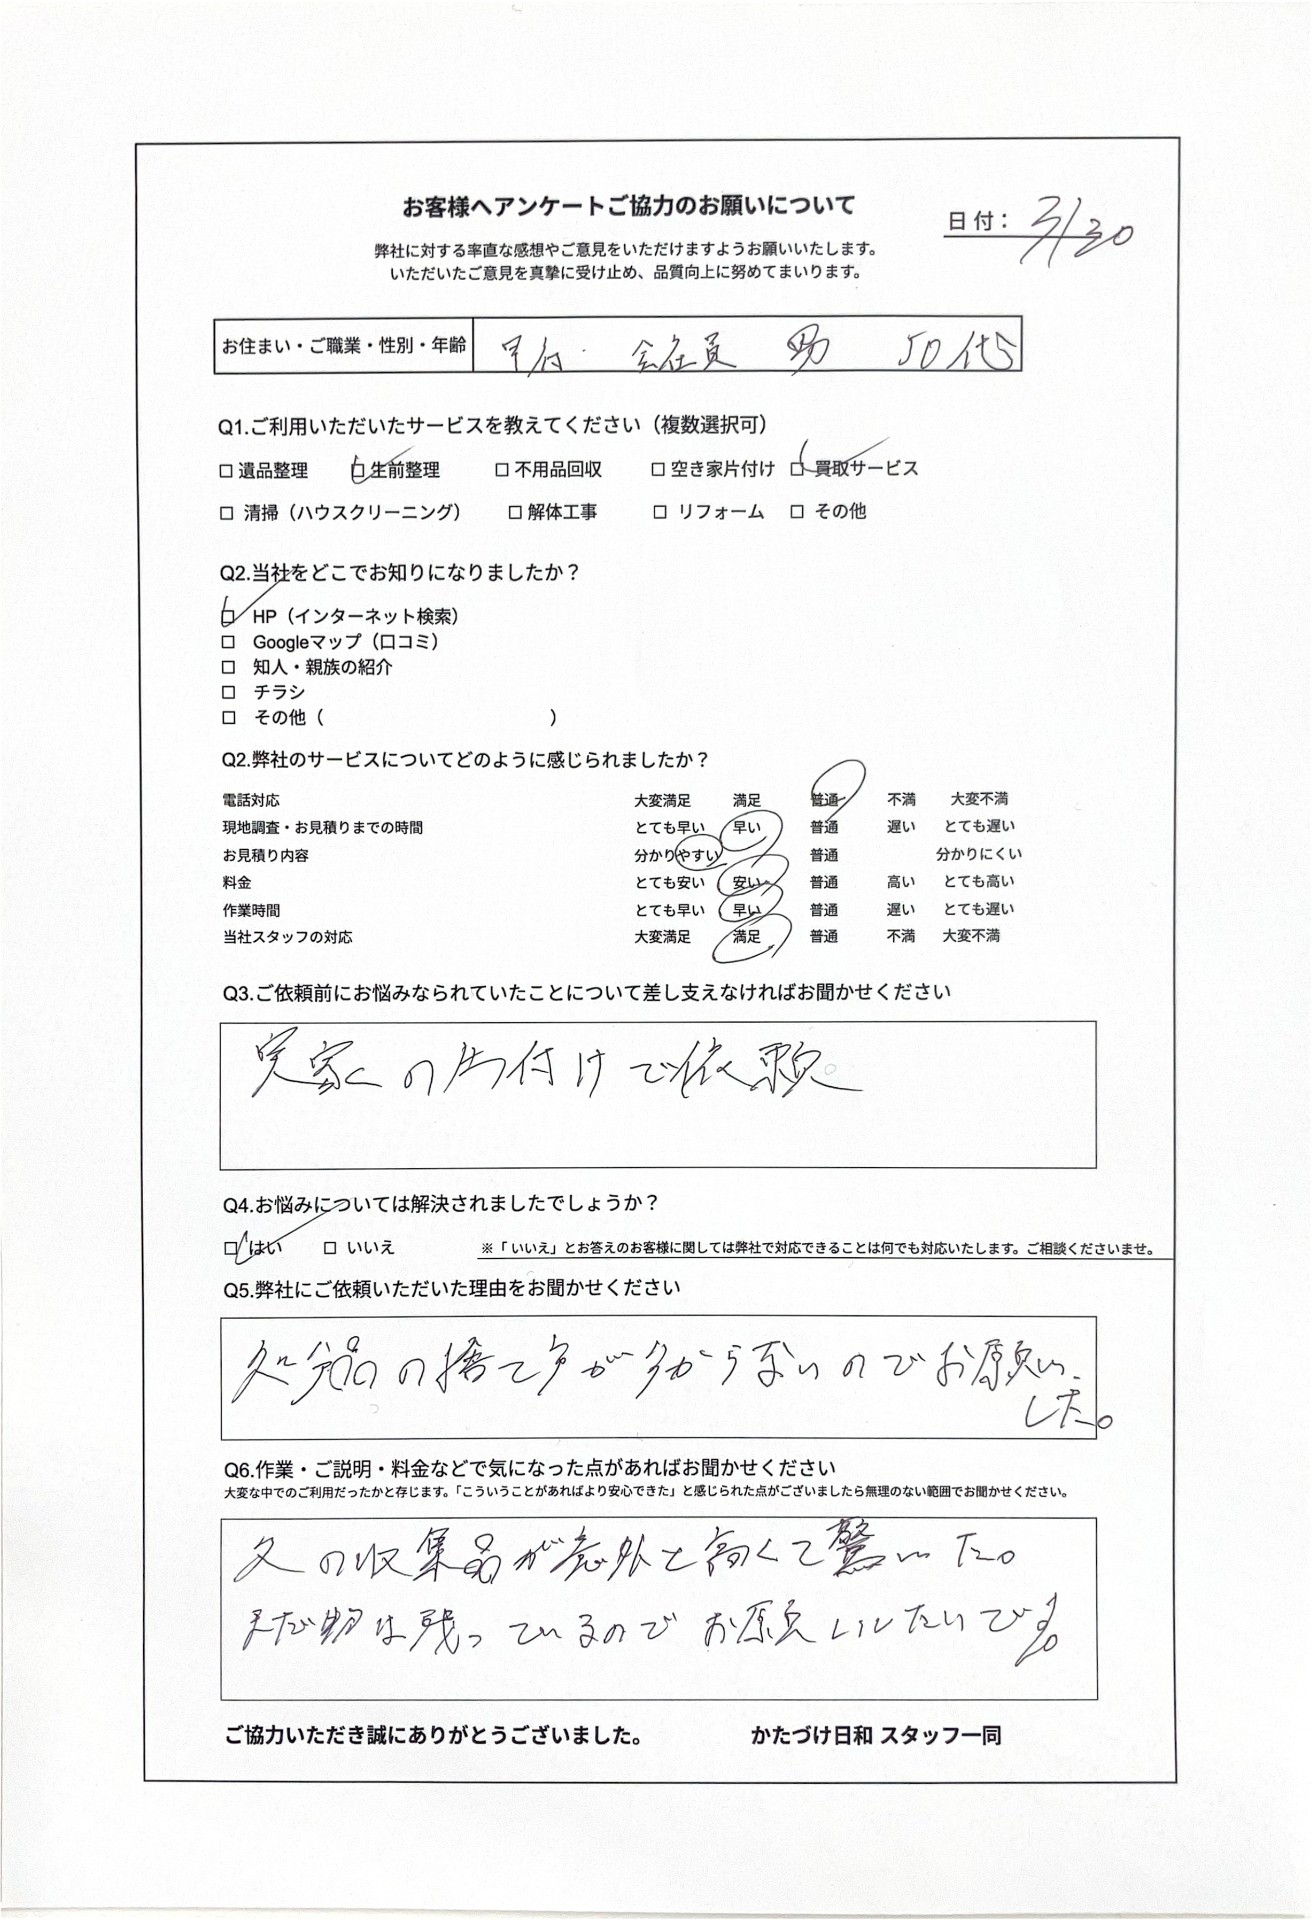 お客様へアンケートご協力のお願いについて
日付： 3/30
弊社に対する率直な感想やご意見をいただけますようお願いいたします。
いただいたご意見を真摯に受け止め、品質向上に努めてまいります。
お住まい・ご職業・性別・年齢 甲府・ 会社員 男 50代
Q1.ご利用いただいたサービスを教えてください（複数選択可）
□ 遺品整理 □ 生前整理 □ 不用品回収 □ 空き家片付け □ 買取サービス
□ 清掃（ハウスクリーニング） □ 解体工事 □ リフォーム □ その他
Q2.当社をどこでお知りになりましたか？
□ HP（インターネット検索）
□ Googleマップ（口コミ）
□ 知人・親族の紹介
□ チラシ
□ その他（ ）
Q2.弊社のサービスについてどのように感じられましたか？
電話対応 大変満足 満足 普通 不満 大変不満
現地調査・お見積りまでの時間 とても早い 早い 普通 遅い とても遅い
お見積り内容 分かりやすい 普通 分かりにくい
料金 とても安い 安い 普通 高い とても高い
作業時間 とても早い 早い 普通 遅い とても遅い
当社スタッフの対応 大変満足 満足 普通 不満 大変不満
Q3.ご依頼前にお悩みなられていたことについて差し支えなければお聞かせください
実家の片付けで依頼。
Q4.お悩みについては解決されましたでしょうか？
□ はい □ いいえ ※「いいえ」とお答えのお客様に関しては弊社で対応できることは何でも対応いたします。ご相談くださいませ。
Q5.弊社にご依頼いただいた理由をお聞かせください
処分品の捨て方が分からないのでお願い
した。
Q6.作業・ご説明・料金などで気になった点があればお聞かせください
大変な中でのご利用だったかと存じます。「こういうことがあればより安心できた」と感じられた点がございましたら無理のない範囲でお聞かせください。
父の収集品が意外と高くて驚いた。
まだ物は残っているのでお願いしたいです。
ご協力いただき誠にありがとうございました。 かたづけ日和 スタッフ一同